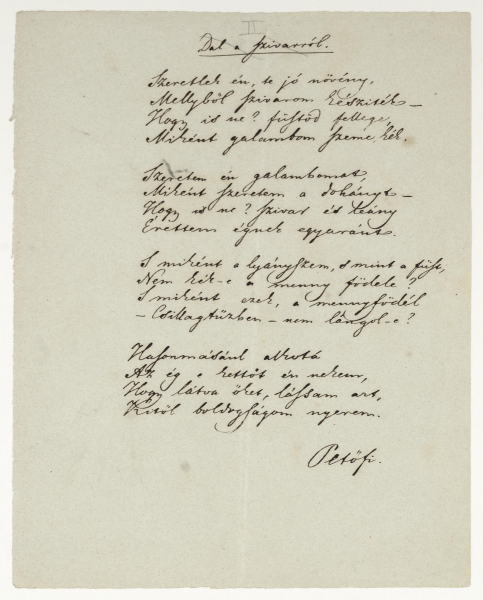 II
Dal a szivarról.
Szeretlek én, te jó növény,
Mellyből szivarom készíték –
Hogy is ne? füstöd fellege,
Miként galambom szeme, kék.
Szeretem én galambomat,
Miként szeretem a dohányt –
Hogy is ne? szivar és leány
Érettem égnek egyaránt.
S miként a lyányszem, s mint a füst,
Nem kék-e a menny födele?
S miként ezek, a mennyfödél
– Csillagtűzben – nem lángol-e?
Hasonmásául alkotá
Az ég e kettőt én nekem,
Hogy látva őket, lássam azt,
Kitől boldogságom nyerem.
Petőfi.